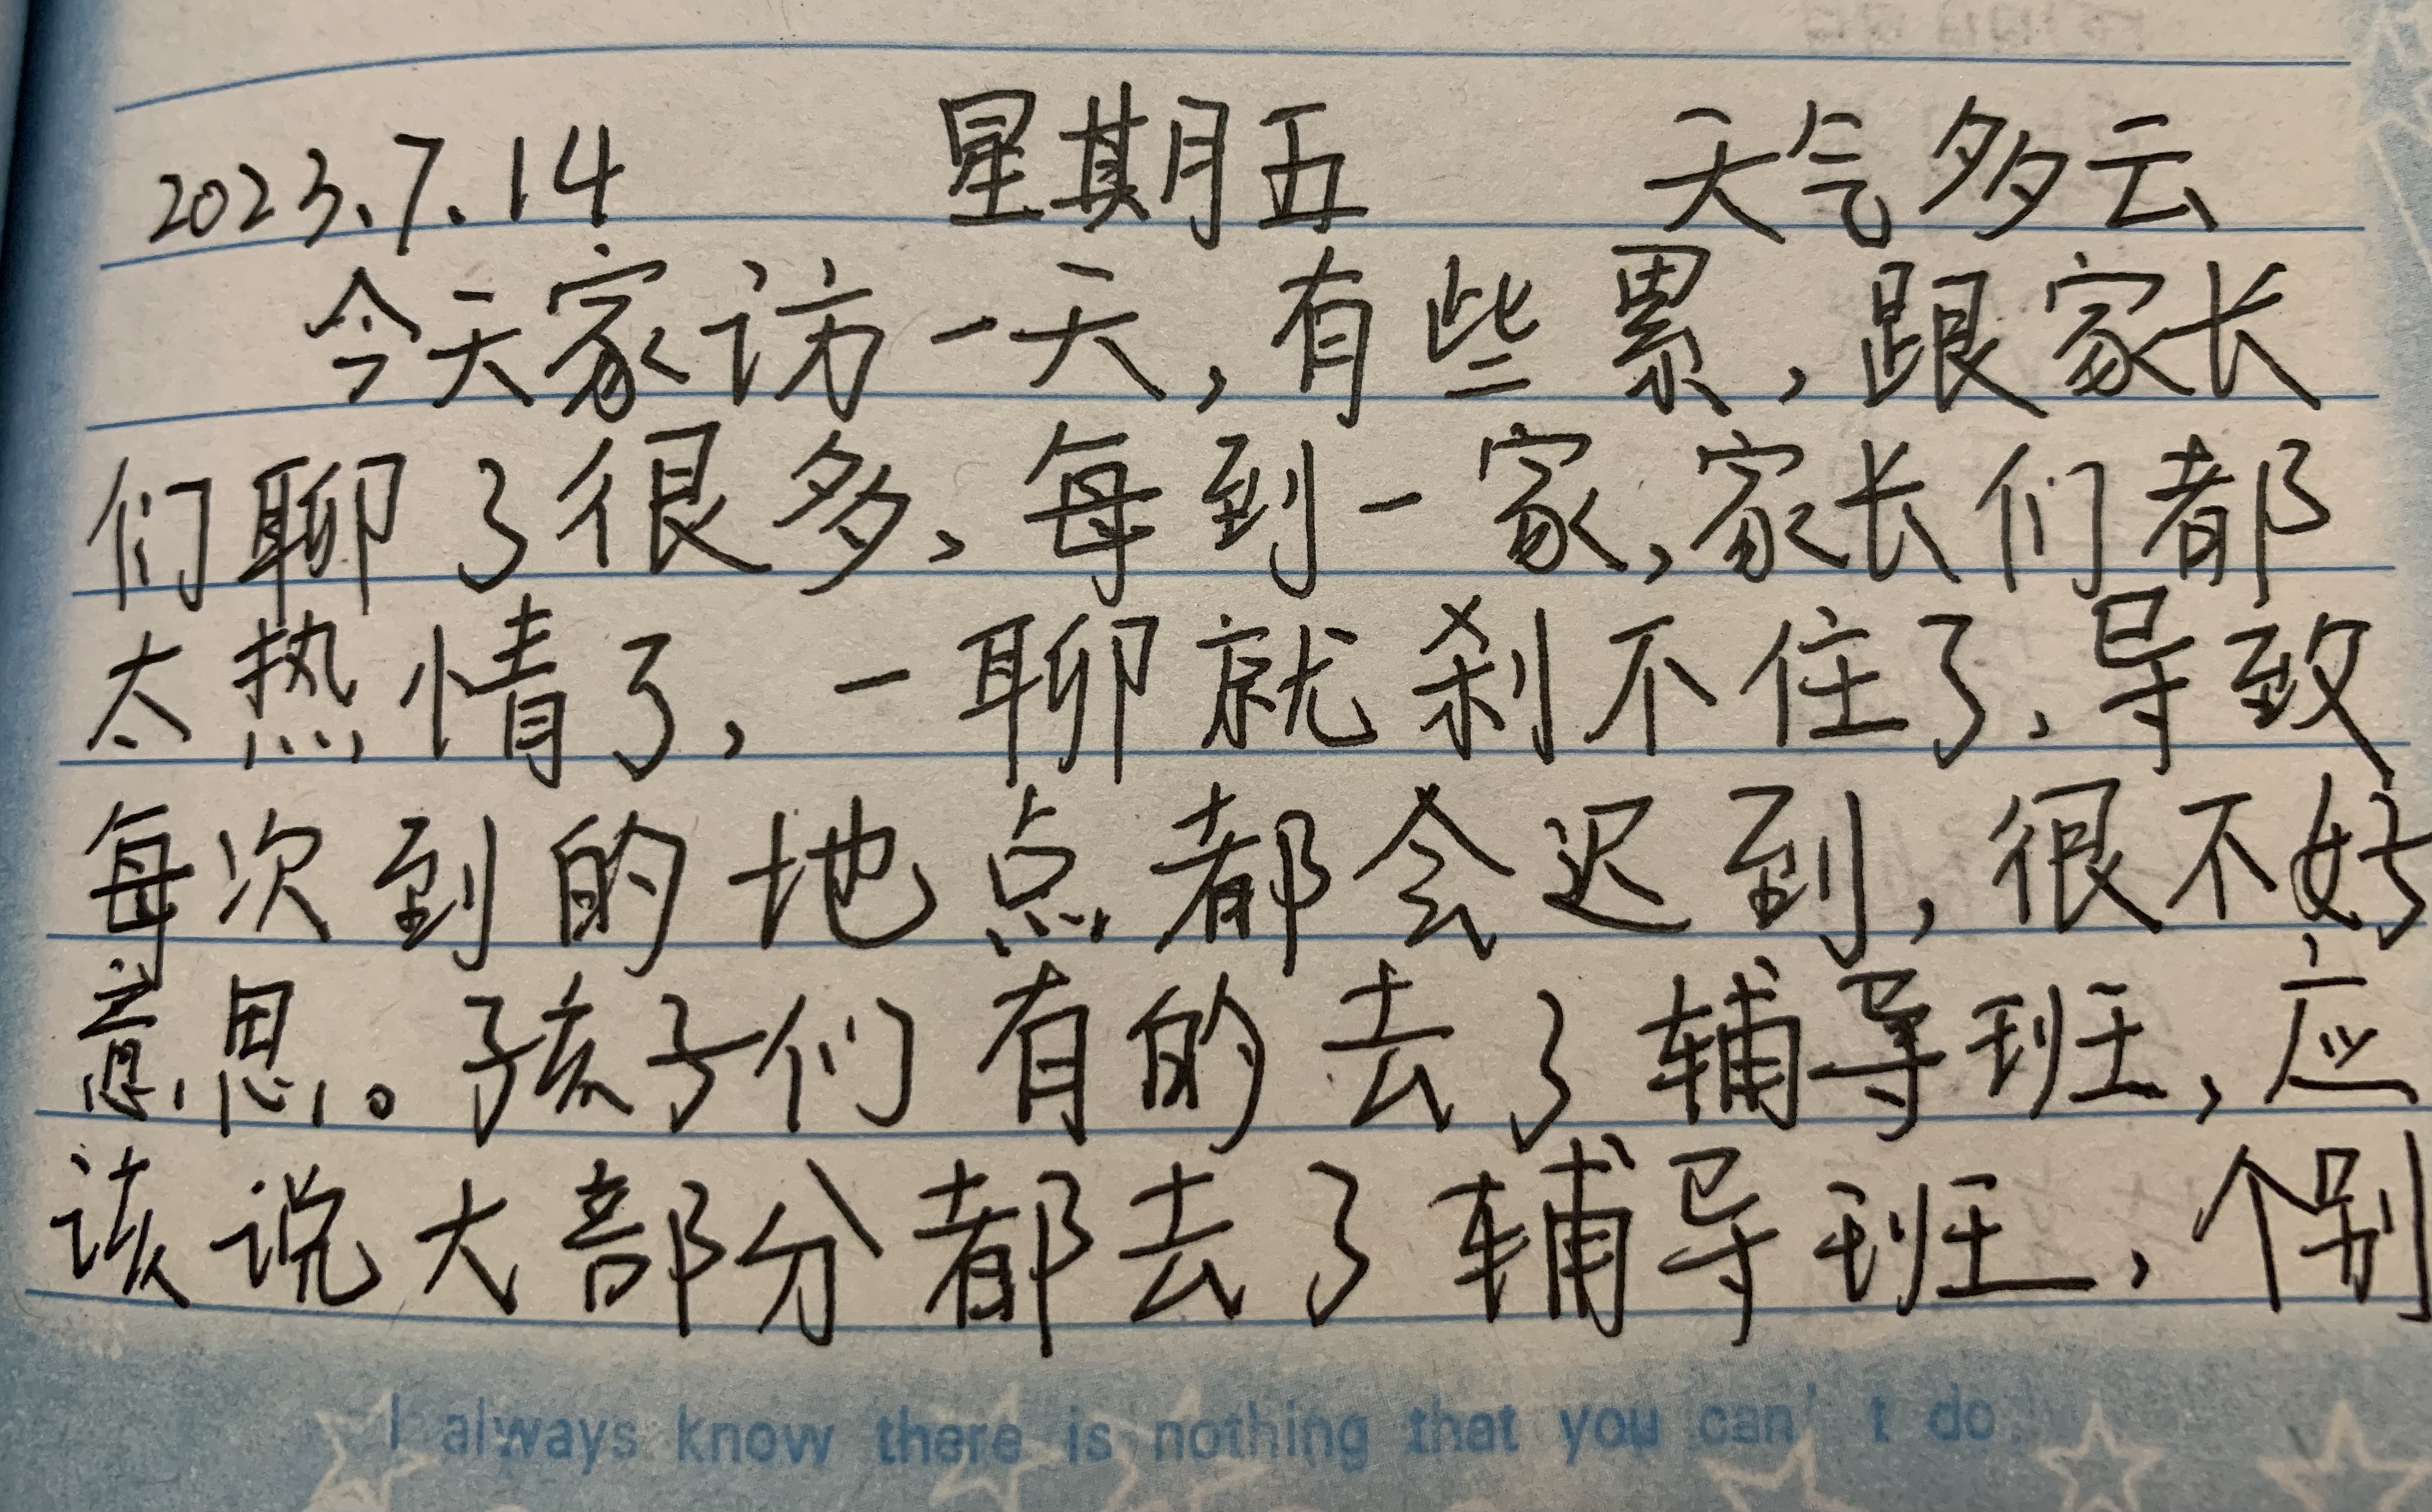 2023.7.14 星期五 天气多云
今天家访一天,有些累,跟家长
们聊了很多,每到一家,家长们都
太热情了,一聊就刹不住了,导致
每次到的地点都会迟到,很不好
意思。孩子们有的去了辅导班,应
该说大部分都去了辅导班,个别
I always know there is nothing that you can't do.